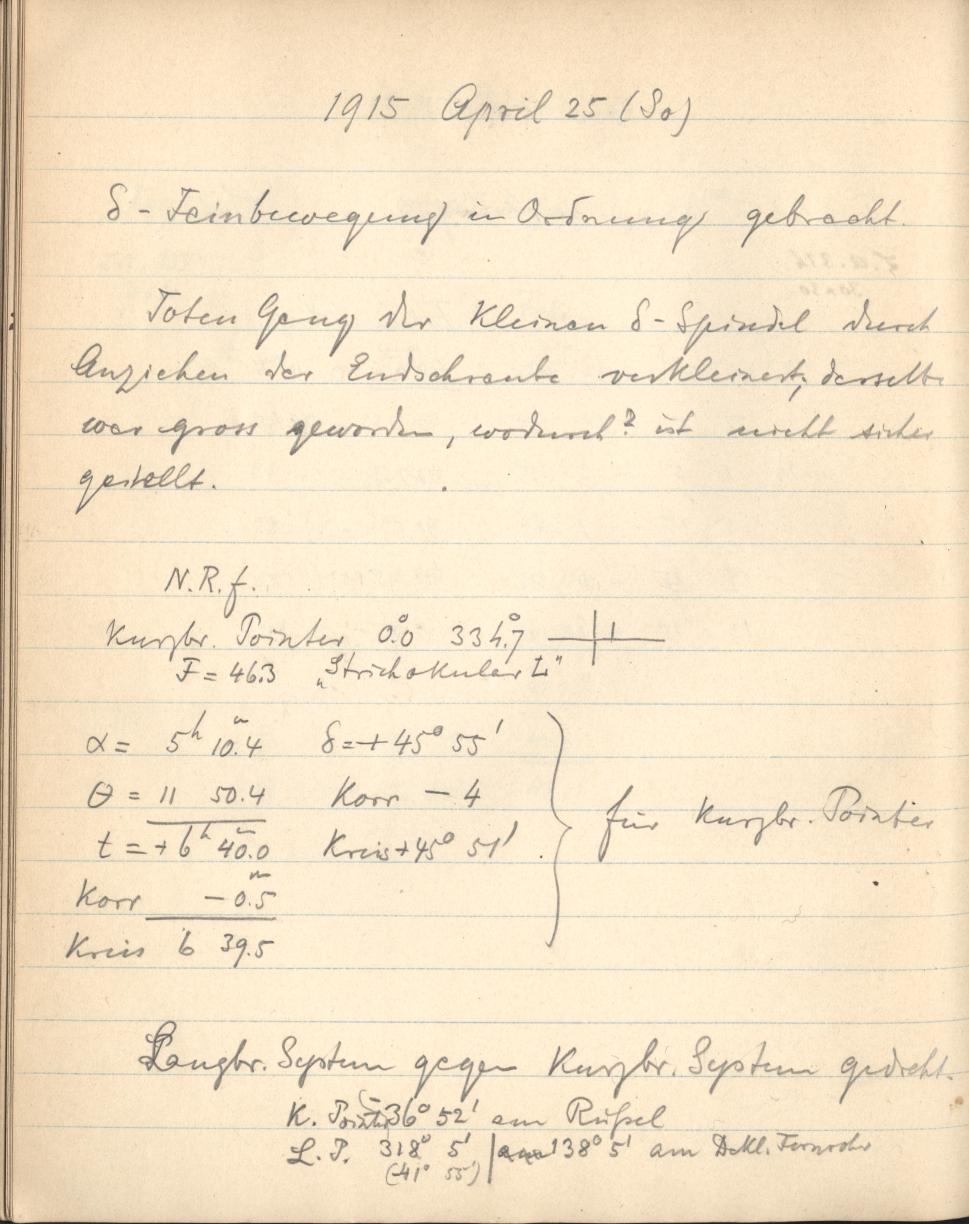 1915 April 25 (So)
δ - Feinbewegung in Ordnung gebracht.
Toten Gang der Kleinen δ - Spindel durch
Anziehen der Endschraube verkleinert; derselbe
war gross geworden, wodurch? ist nicht sicher
gestellt.
N.R.f.
Kurzbr. Pointer 0°.0 334°.7
F = 46.3 „Strichokular L"
α = 5h 10m.4 δ = + 45° 55'
θ = 11 50.4 Korr - 4
t = + 6h 40m.0 Kreis + 45° 51'
für Kurzbr. Pointer
Korr - 0m.5
Kreis 6 39.5
Langbr. System gegen Kurzbr. System gedreht.
K. Pointer 36° 52' am Rüssel
L. P. 318° 5' | 138° 5' am Dekl. Fernrohr
(-41° 55')